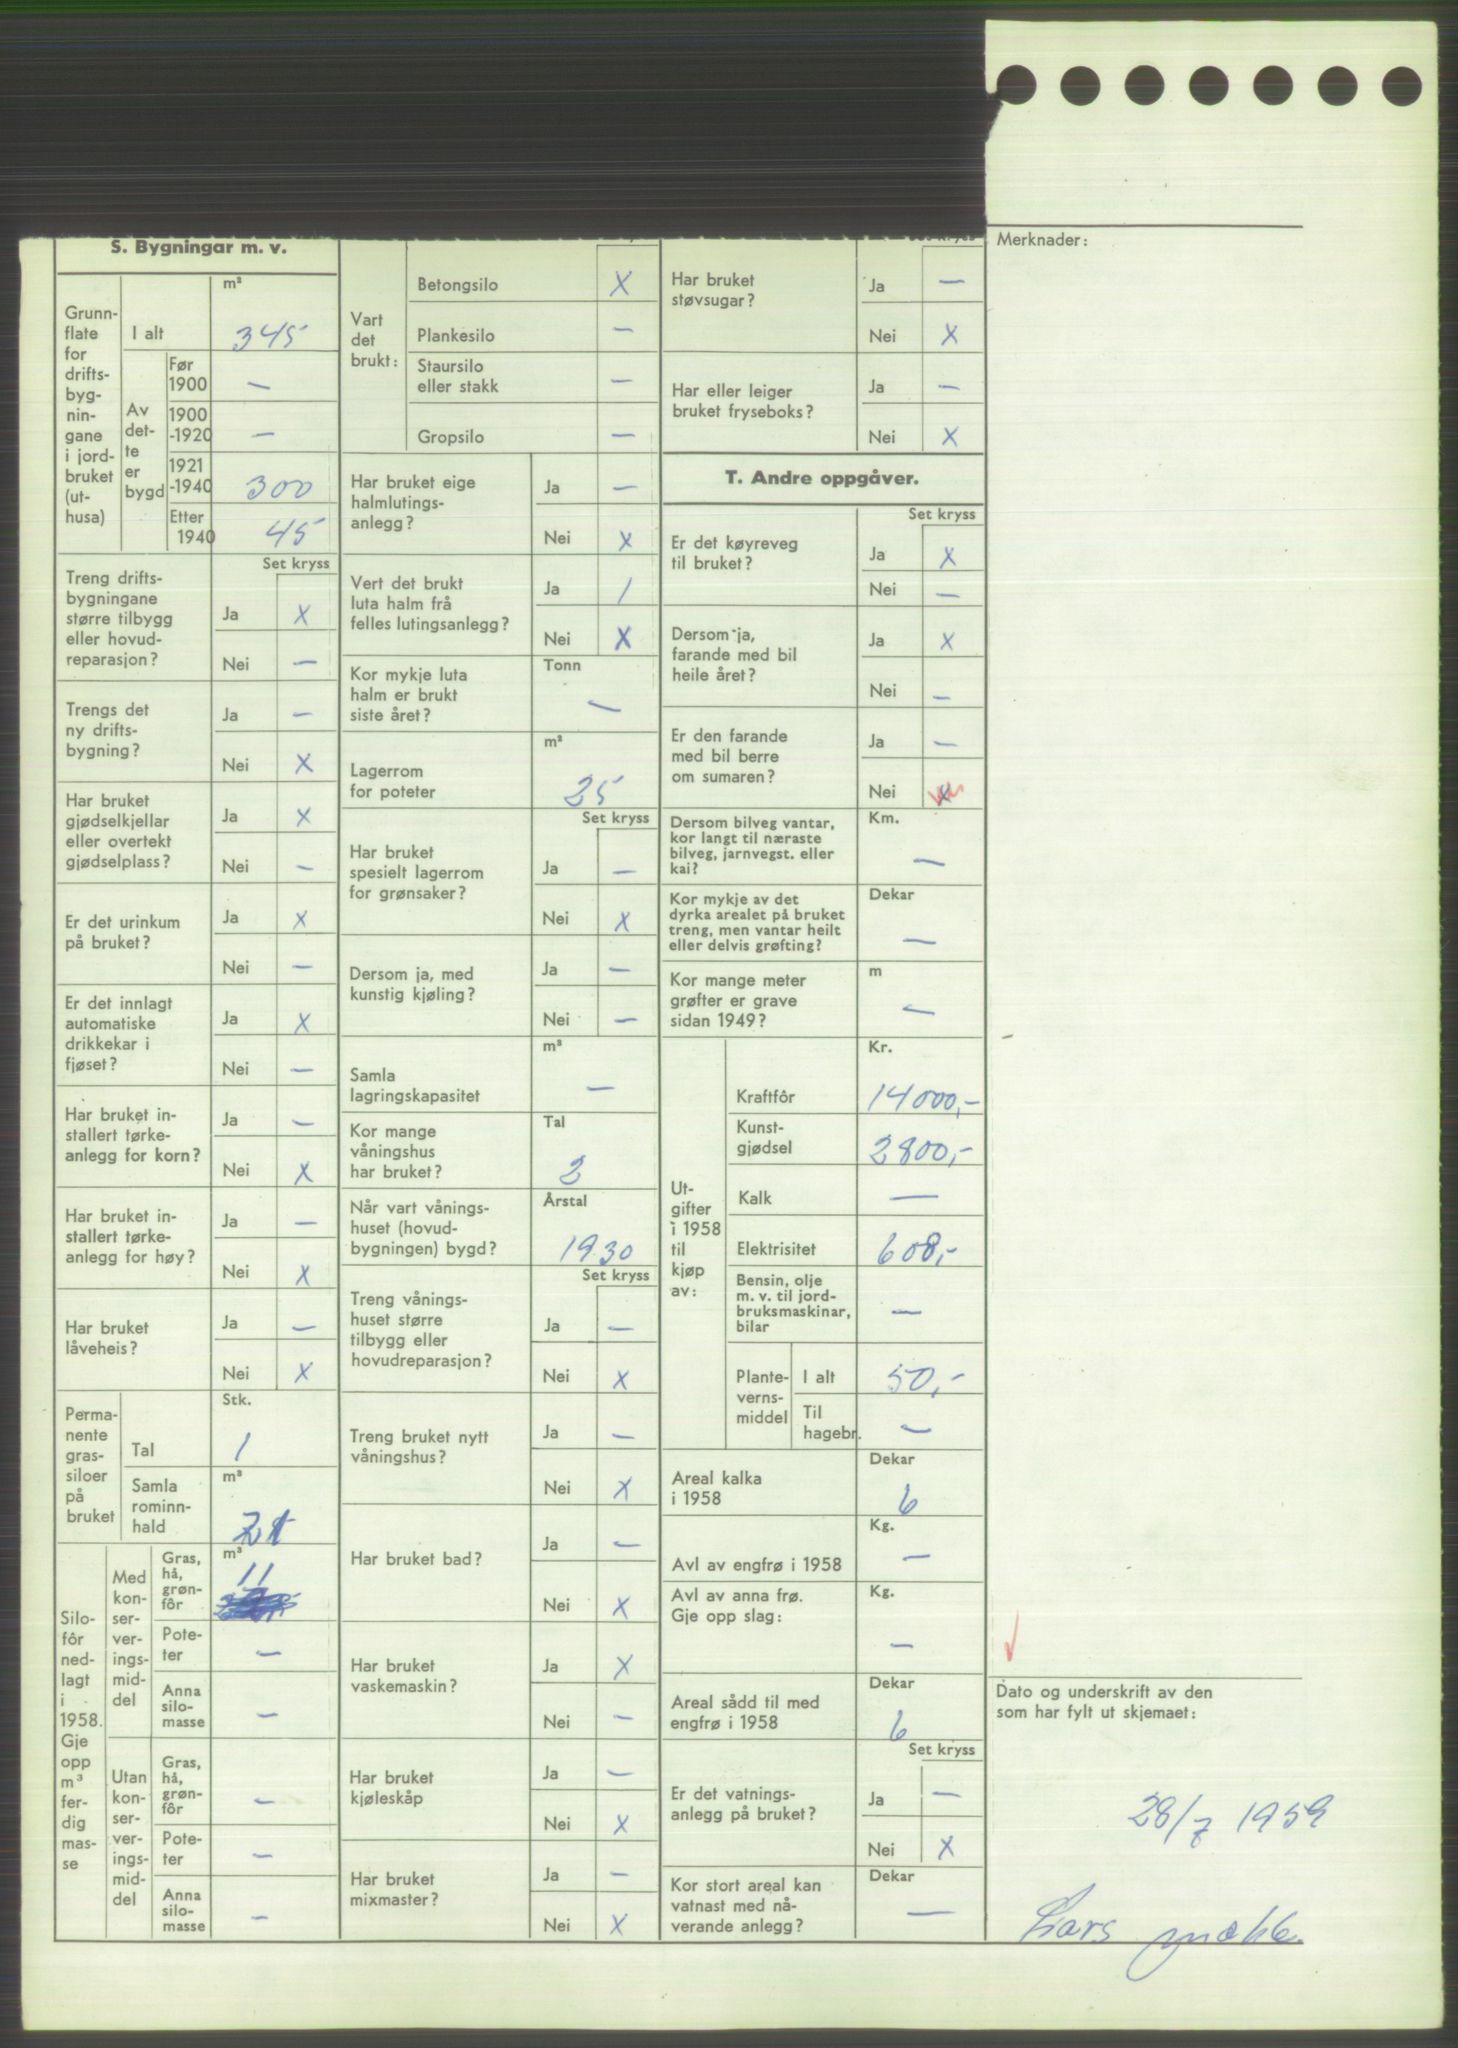 S. Bygningar m. v.
Grunn-
flate
for
drifts-
byg-
nin-
gane
i jord-
bruket
(ut-
husa)
m²
I alt 345
Av
det-
te
er
bygd
Før
1900 —
1900
-1920 —
1921
-1940 300
Etter
1940 45
Set kryss
Treng drifts-
bygningane
større tilbygg
eller hovud-
reparasjon?
Ja X
Nei —
Trengs det
ny drifts-
bygning?
Ja —
Nei X
Har bruket
gjødselkjellar
eller overtekt
gjødselplass?
Ja X
Nei —
Er det urinkum
på bruket?
Ja X
Nei —
Er det innlagt
automatiske
drikkekar i
fjøset?
Ja X
Nei —
Har bruket in-
stallert tørke-
anlegg for korn?
Ja —
Nei X
Har bruket in-
stallert tørke-
anlegg for høy?
Ja —
Nei X
Har bruket
låveheis?
Ja —
Nei X
Perma-
nente
gras-
siloer
på
bruket
Stk.
Tal 1
Samla
rominn-
hald
m³
Silo-
fôr
ned-
lagt
i
1958.
Gje
opp
m³
fer-
dig
mas-
se
Med
kon-
ser-
ver-
ings-
mid-
del
Gras,
hå,
grøn-
fôr
m³
11
Pote-
ter —
Anna
silo-
masse —
Utan
kon-
ser-
ver-
ings-
mid-
del
Gras,
hå,
grøn-
fôr —
Pote-
ter —
Anna
silo-
masse —
Vart
det
brukt:
Betongsilo X
Plankesilo —
Staursilo
eller stakk —
Gropsilo —
Har bruket eige
halmlutings-
anlegg?
Ja —
Nei X
Vert det brukt
luta halm frå
felles lutingsanlegg?
Ja /
Nei X
Kor mykje luta
halm er brukt
siste året?
Tonn
—
Lagerrom
for poteter
m²
25
Set kryss
Har bruket
spesielt lagerrom
for grønsaker?
Ja —
Nei X
Dersom ja, med
kunstig kjøling?
Ja —
Nei —
Samla
lagringskapasitet
m³
—
Kor mange
våningshus
har bruket?
Tal
2
Når vart vånings-
huset (hovud-
bygningen) bygd?
Årstal
1930
Set kryss
Treng vånings-
huset større
tilbygg eller
hovudreparasjon?
Ja —
Nei X
Treng bruket nytt
våningshus?
Ja —
Nei X
Har bruket bad?
Ja —
Nei X
Har bruket
vaskemaskin?
Ja X
Nei —
Har bruket
kjøleskåp
Ja —
Nei X
Har bruket
mixmaster?
Ja —
Nei X
Set kryss
Har bruket
støvsugar?
Ja —
Nei X
Har eller leiger
bruket fryseboks?
Ja —
Nei X
T. Andre oppgåver.
Set kryss
Er det køyreveg
til bruket?
Ja X
Nei —
Dersom ja,
farande med bil
heile året?
Ja X
Nei —
Er den farande
med bil berre
om sumaren?
Ja —
Nei X
Dersom bilveg vantar,
kor langt til næraste
bilveg, jarnvegst. eller
kai?
Km.
—
Kor mykje av det
dyrka arealet på bruket
treng, men vantar heilt
eller delvis grøfting?
Dekar
—
Kor mange meter
grøfter er grave
sidan 1949?
m
—
Ut-
gifter
i 1958
til
kjøp
av:
Kr.
Kraftfôr 14000,-
Kunst-
gjødsel 2800,-
Kalk —
Elektrisitet 608,-
Bensin, olje
m. v. til jord-
bruksmaskinar,
bilar —
Plante-
verns-
middel
I alt 50,-
Til
hagebr. —
Areal kalka
i 1958
Dekar
6
Avl av engfrø i 1958
Kg.
—
Avl av anna frø.
Gje opp slag:
Kg.
—
Areal sådd til med
engfrø i 1958
Dekar
6
Set kryss
Er det vatnings-
anlegg på bruket?
Ja —
Nei X
Kor stort areal kan
vatnast med nå-
verande anlegg?
Dekar
—
Merknader:
Dato og underskrift av den
som har fylt ut skjemaet:
28/7 1959
Lars